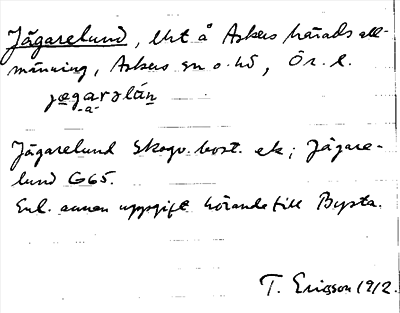 Jägarelund, lht å Askers härads all-
männing, Askers sn o. hd, Ör. l.
jægarəlán
-a-
Jägarelund Skogv. bost. ek; Jägare-
lund G65.
Enl. annan uppgift hörande till Bysta.
T. Ericsson 1912.